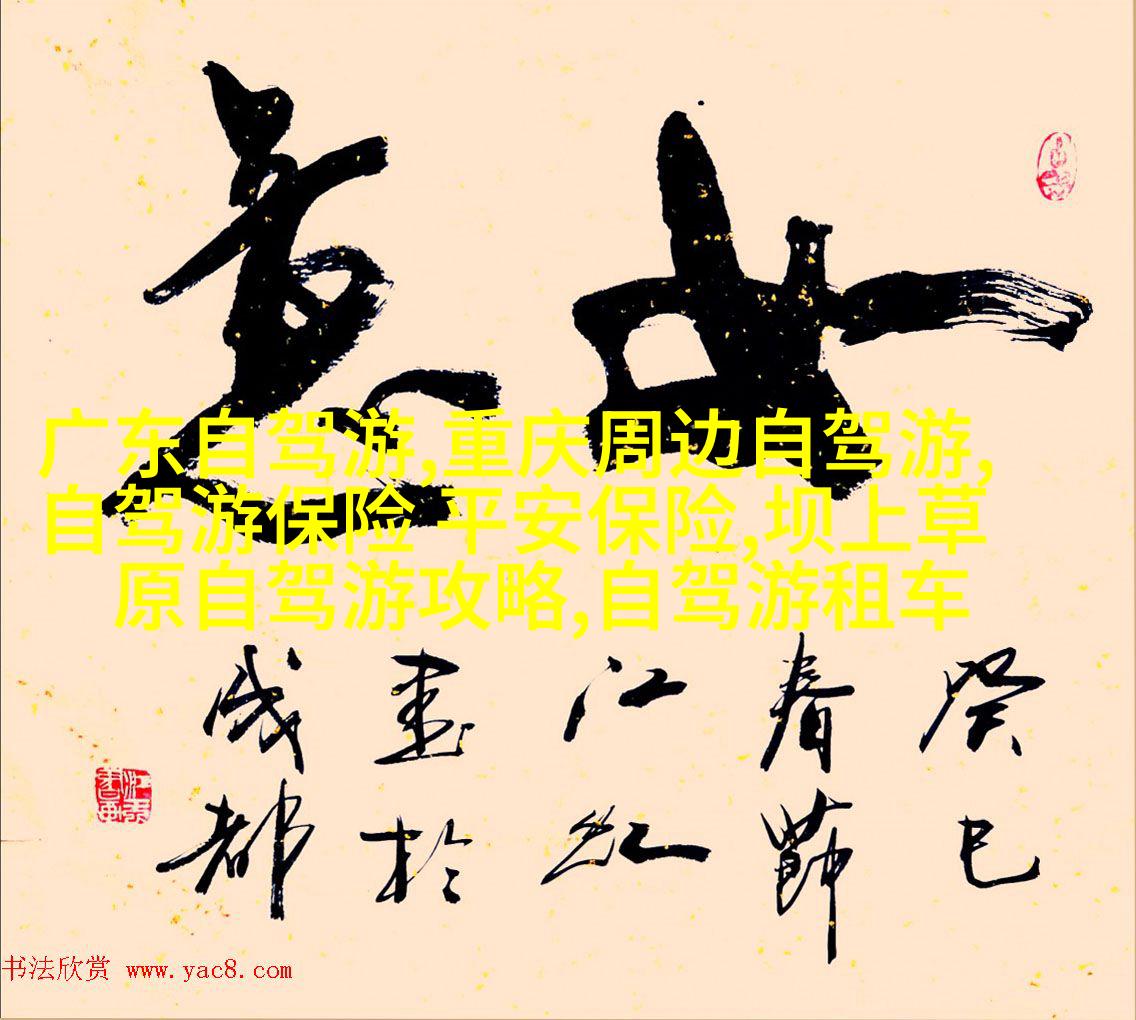 如意
广东自驾游,重庆周边自驾游,
自驾游保险 平安保险,坝上草
原自驾游攻略,自驾游租车
癸巳
春节
江红
书于
成都
书法欣赏 www.yac8.com